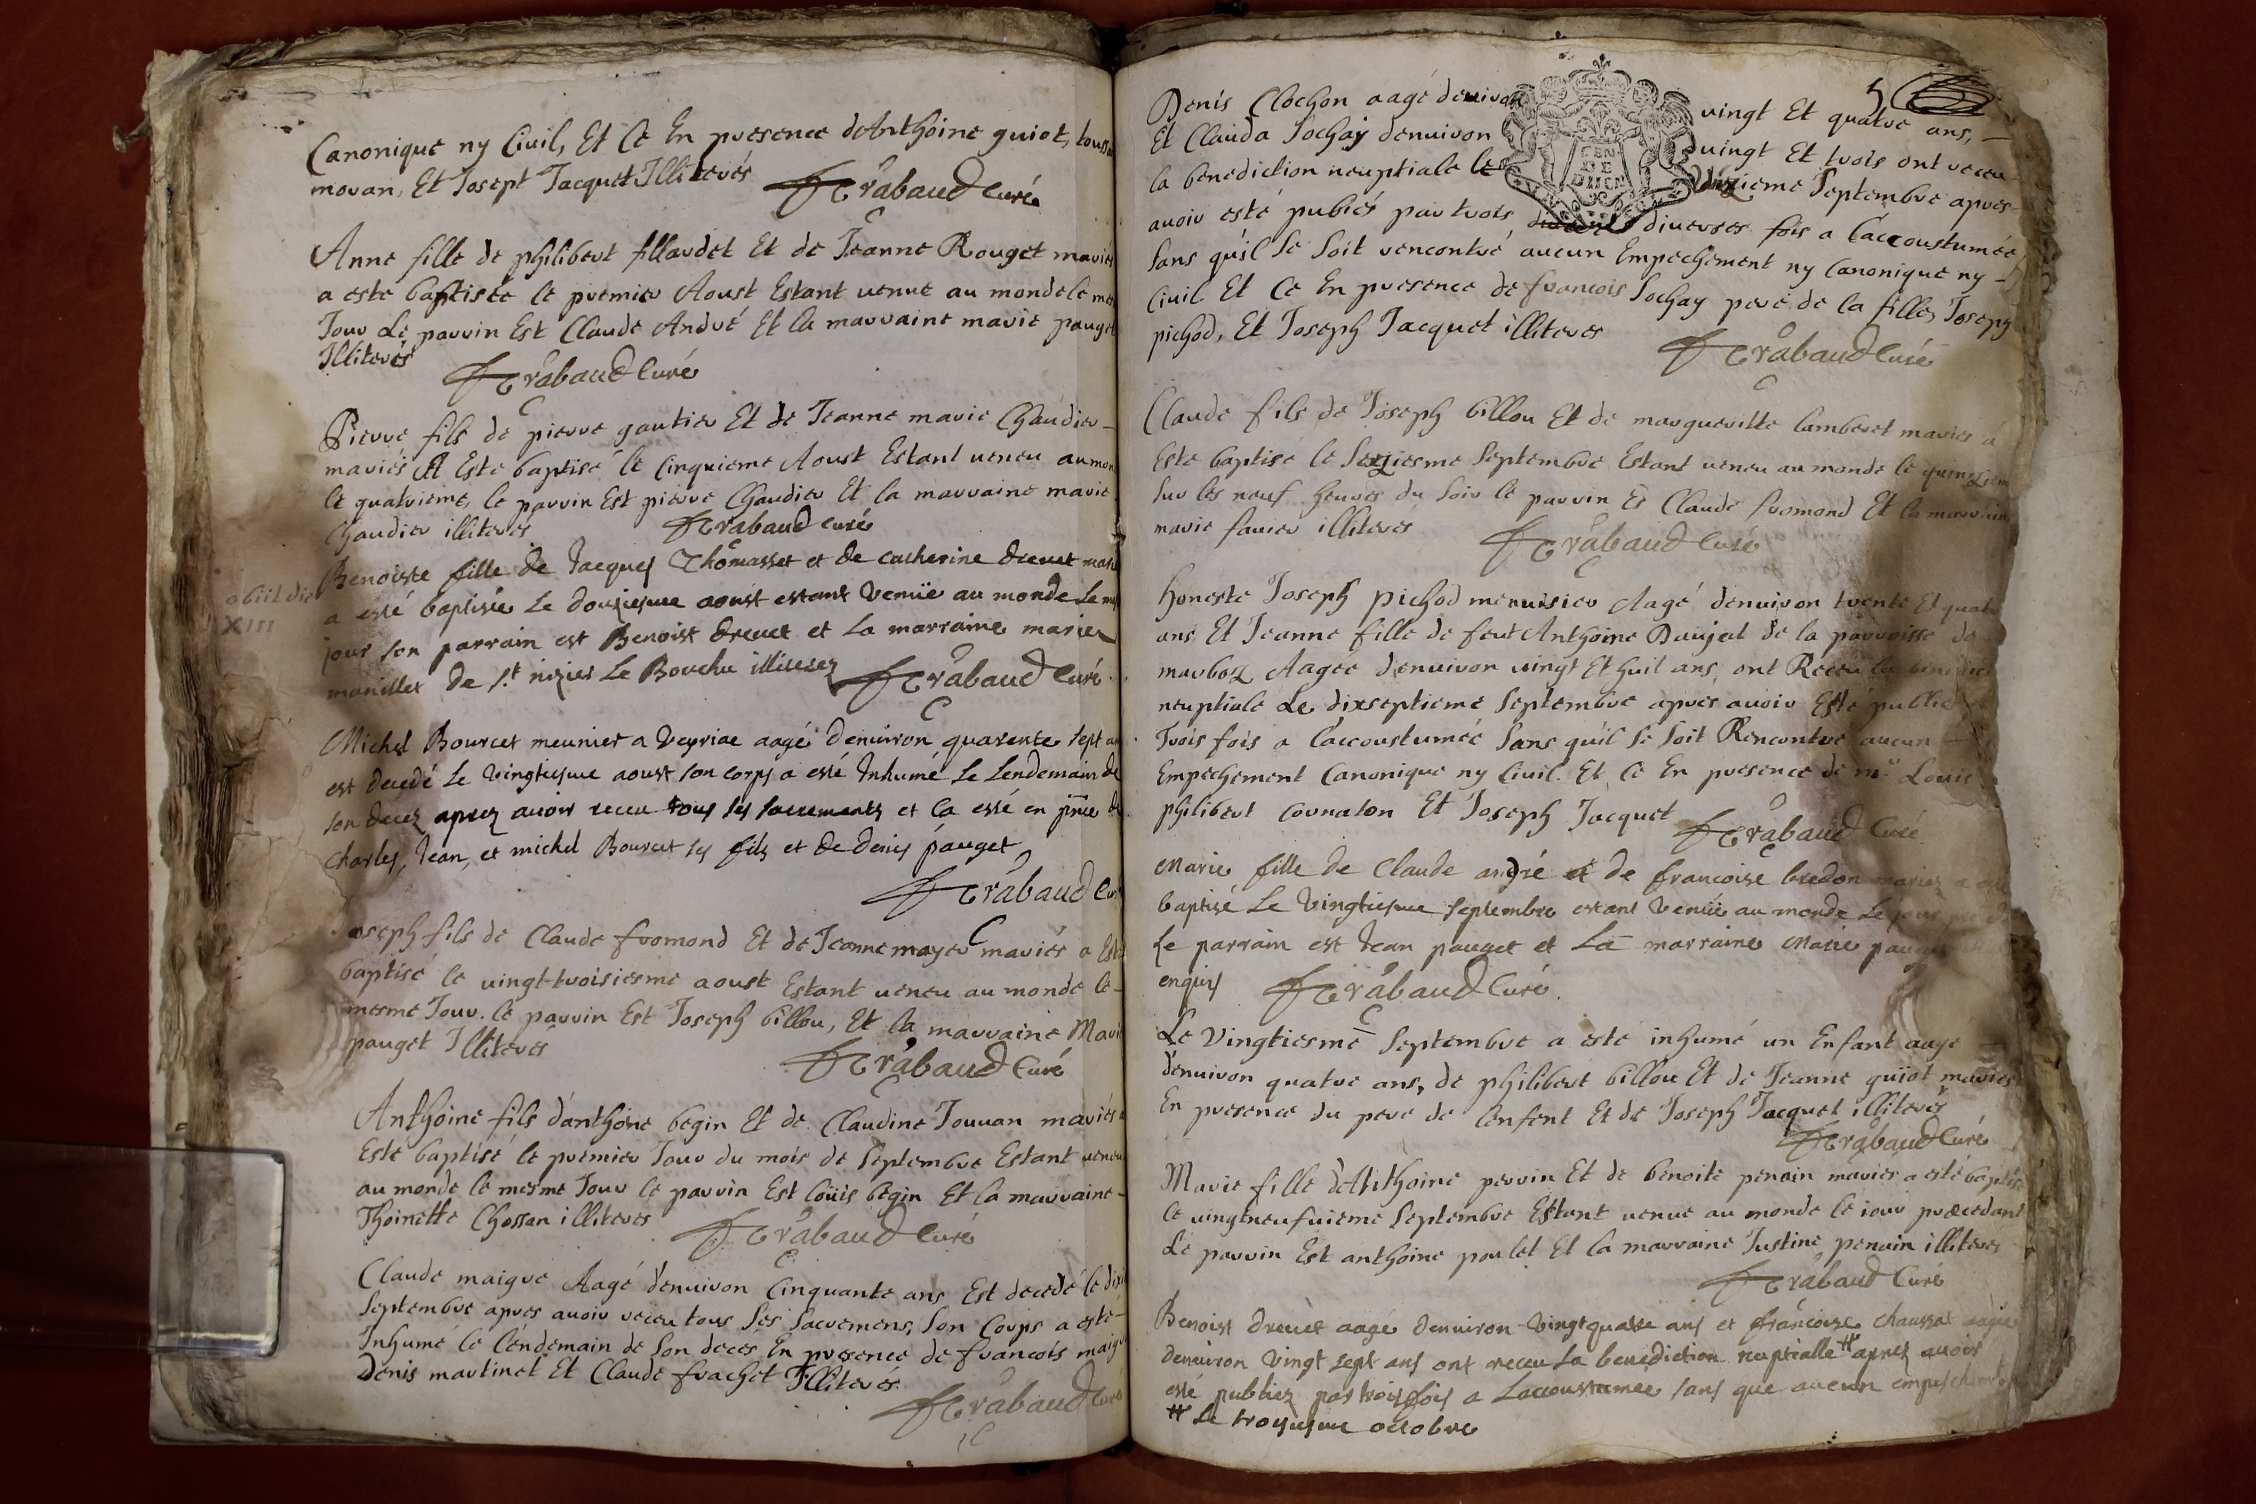 Canonique ny Civil, Et Ce En presence d'Anthoine guiot,
moran, Et Josept Jacquet Illiterés Trabaud Curé
Anne fille de philibert fillardet Et de Jeanne Rouget mariés
a este baptisée le premier Aoust Estant venue au monde le
Jour Le parrin Est Claude André Et la marraine marie pauget
Illiterés Trabaud Curé
Pierre fils de pierre gautier Et de Jeanne marie Chaudier
mariés A Este baptisé le Cinquieme Aoust Estant veneu au
le quatrieme, le parrin Est pierre Chaudier Et la marraine marie
Chaudier illiteres Trabaud Curé
Benoiste fille de Jacques Thomasset et de Catherine dreuet
obiit die
a esté baptisée Le dousiesme aoust estant Venüe au monde Le
XIII
jour son parrain est Benoist dreuet et La marraine marie
manillier de St nizier Le Bouchu illiterez Trabaud Curé
Michel Bourcet meunier a Veyriae aagé d'enuiron quarente sept
est decedé Le Vingtiesme aoust son corps a esté Inhumé Le Lendemain de
son decez aprez auoir receu tous ses sacrements et ca esté en pnce de
Charles, Jean, et michel Bourcet ses fils et de denis pauget
Trabaud
Joseph fils de Claude fromond Et de Jeanne mayer mariés a Esté
baptisé le vingt-troisiesme aoust Estant veneu au monde le
mesme Jour. le parrin Est Joseph billou, Et la marraine Marie
pauget Illiterés Trabaud Curé
Anthoine fils d'anthoine begin Et de Claudine Jouuan mariés
Este baptisé le premier Jour du mois de Septembre Estant veneu
au monde le mesme Jour le parrin Est loüis begin Et la marraine
Thoinette Chossan illiteres Trabaud Curé
Claude maigre Aagé d'enuiron Cinquante ans Est decedé le
Septembre apres auoir receu tous Ses Sacremens, Son Corps a esté
Inhumé le lendemain de Son deces En presence de francois maigre
Denis martinet Et Claude frachet Illiteres
Trabaud Curé
5
Denis Clochon aagé denuiron vingt Et quatre ans,
Et Clauda Sochay denuiron vingt Et trois ont receu
la benediction neuptiale le dizieme Septembre apres
auoir esté publiés par trois diuerses fois a l'accoustumée
Sans qu'il Se Soit rencontré aucun Empechement ny Canonique ny
Civil Et Ce En presence de francois Sochay pere de la fille, Joseph
pichod, Et Joseph Jacquet illiteres
Trabaud Curé
Claude fils de Joseph billou Et de margueritte lamberet mariés a
Este baptisé le Seziesme Septembre Estant veneu au monde le
Sur les neuf heures du Soir le parrin Es Claude fromond Et la
marie faurer illiterés Trabaud Curé
honeste Joseph pichod menuisier Aagé denuiron trente Et
ans Et Jeanne fille de feut Anthoine Daujat de la parroisse de
marboz Aagée denuiron vingt Et huit ans, ont Receu la
neuptiale Le dixseptieme Septembre apres auoir Esté
Trois fois a l'accoustumée Sans qu'il Se Soit Rencontré aucun
Empechement Canonique ny Civil. Et Ce En presence de mre Louis
philibert cornaton Et Joseph Jacquet Trabaud Curé
Marie fille de Claude andré et de francoise bredon
baptisé Le Vingtiesme septembre estant Venüe au monde Le
Le parrain est Jean pauget et La marraine Marie
enquis Trabaud Curé
Le Vingtiesme Septembre a este inhumé un Enfant aage
d'enuiron quatre ans, de philibert billou Et de Jeanne guiot mariés
En presence du pere de lenfent Et de Joseph Jacquet illiterés
Trabaud Curé
Marie fille d'Anthoine perrin Et de benoite penain mariés a esté baptisé
le vingtneufuieme Septembre Estant venue au monde le iour precedant
Le parrin Est anthoine poulet Et la marraine Justine penain illiteres
Trabaud Curé
Benoist dreuet aagé denuiron Vingt quatre ans et francoise chaussat
denuiron Vingt sept ans ont receu La benediction nuptialle # aprez auoir
esté publiez par trois fois a Laccoustumée sans que aucun
# Le troysiesme octobre